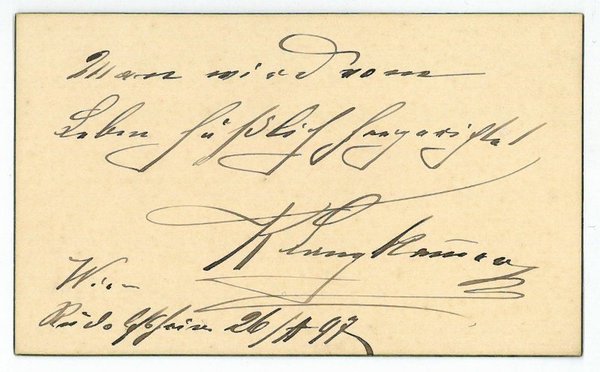 Man wird vom
Leben häßlich hergerichtet
Wien
Rudolfsheim 26/ 97